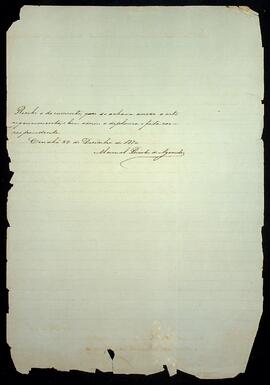 Recebi o documento, que se achava annexo a este
requerimento, e bem assim o diploma e fita cor-
respondente.
Cuiabá 22 de Dezembro de 187
Manoel de Azevedo